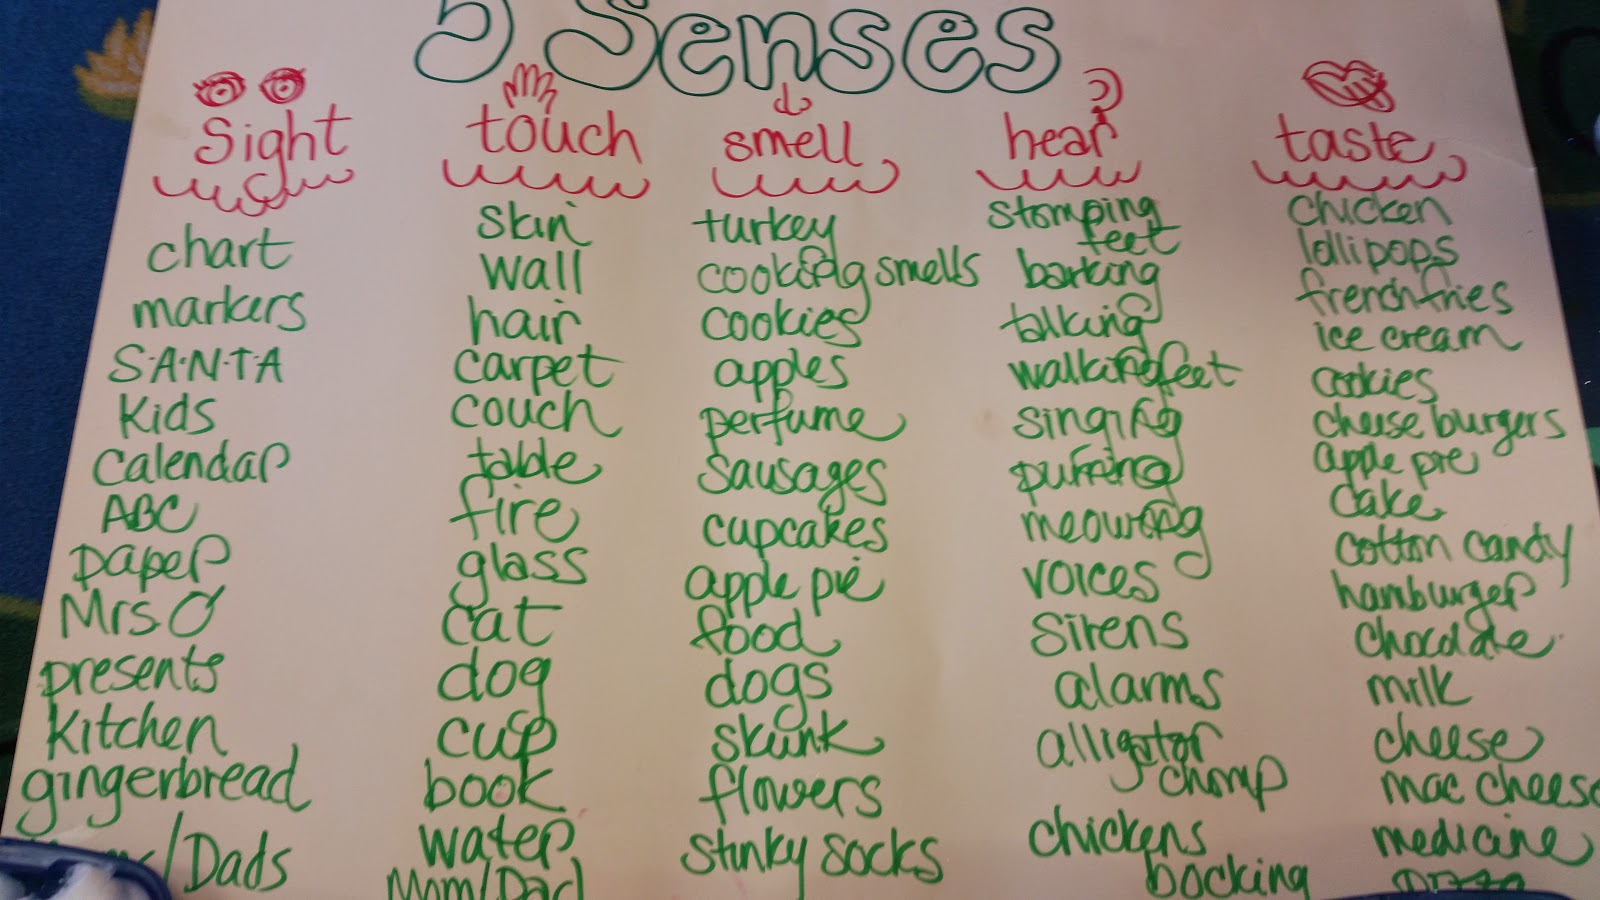 5 Senses
Sight
chart
markers
S.A.N.T.A
Kids
Calendar
ABC
paper
Mrs. O
presents
kitchen
gingerbread
/Dads
touch
skin
wall
hair
carpet
couch
table
fire
glass
cat
dog
cup
book
water
Mom/Dad
smell
turkey
cooking smells
cookies
apples
perfume
sausages
cupcakes
apple pie
food
dogs
skunk
flowers
stinky socks
hear
stomping
feet
barking
talking
walking feet
singing
purring
meowing
voices
sirens
alarms
alligator
chomp
chickens
bocking
taste
chicken
lollipops
french fries
ice cream
cookies
cheese burgers
apple pie
cake
cotton candy
hamburger
chocolate
milk
cheese
mac cheese
medicine
pizza